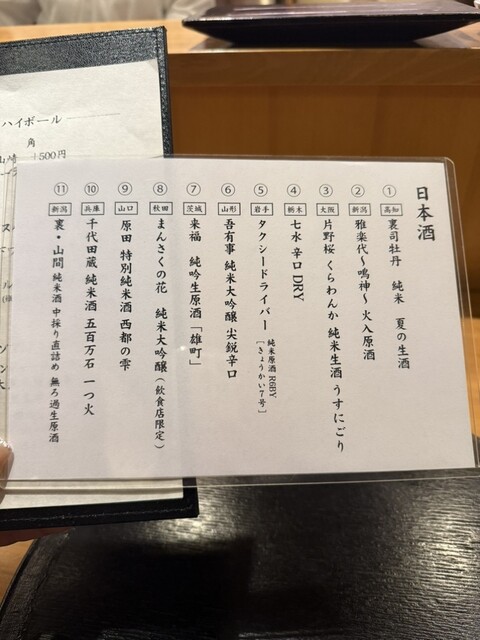 日本酒
① 高知 裏司牡丹 純米 夏の生酒
② 新潟 雅楽代〜鳴神〜 火入原酒
③ 大阪 片野桜 くらわんか 純米生酒 うすにごり
④ 栃木 七水 辛口 DRY
⑤ 岩手 タクシードライバー 純米原酒 R6BY
[きょうかい7号]
⑥ 山形 吾有事 純米大吟醸 尖鋭辛口
⑦ 茨城 来福 純吟生原酒「雄町」
⑧ 秋田 まんさくの花 純米大吟醸(飲食店限定)
⑨ 山口 原田 特別純米酒 西都の雫
⑩ 兵庫 千代田蔵 純米酒 五百万石 一つ火
⑪ 新潟 裏・山間 純米酒 中採り直詰め 無ろ過生原酒
ハイボール
角
500円